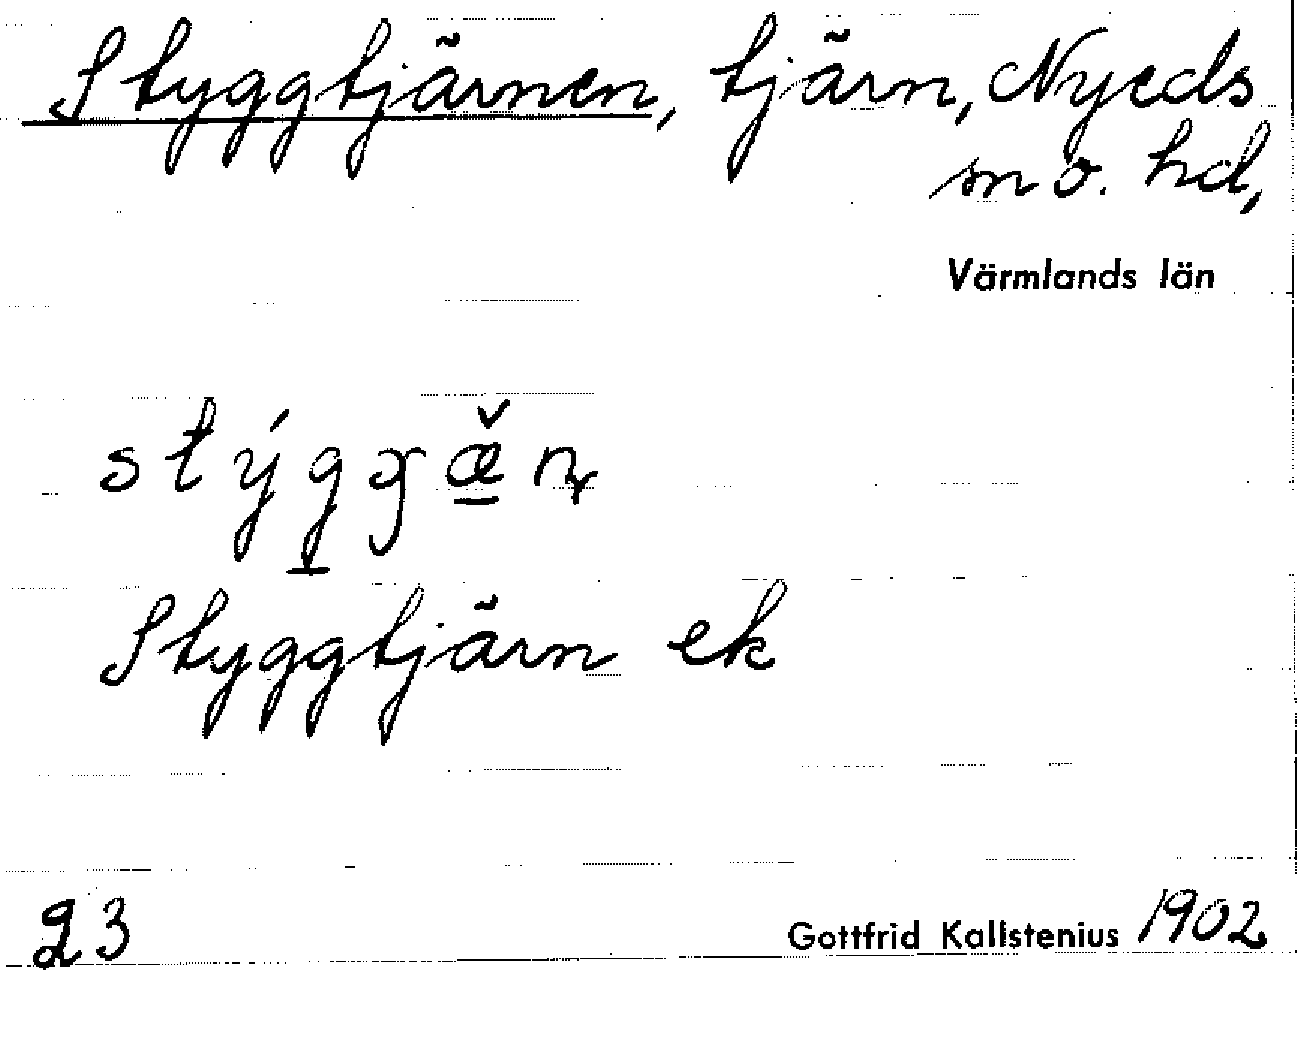 Styggtjärnen, tjärn, Nyeds
sn o. hd,
Värmlands län
Styggtjärn ek
23
Gottfrid Kallstenius 1902